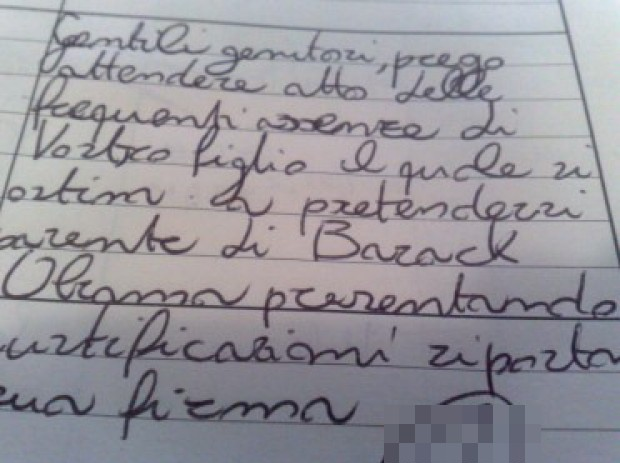 Gentili genitori, prego
attendere atto delle
frequenti assenze di
Vostro figlio il quale si
ostina a pretendersi
parente di Barack
Obama presentando
iustificazioni riporta
sua firma